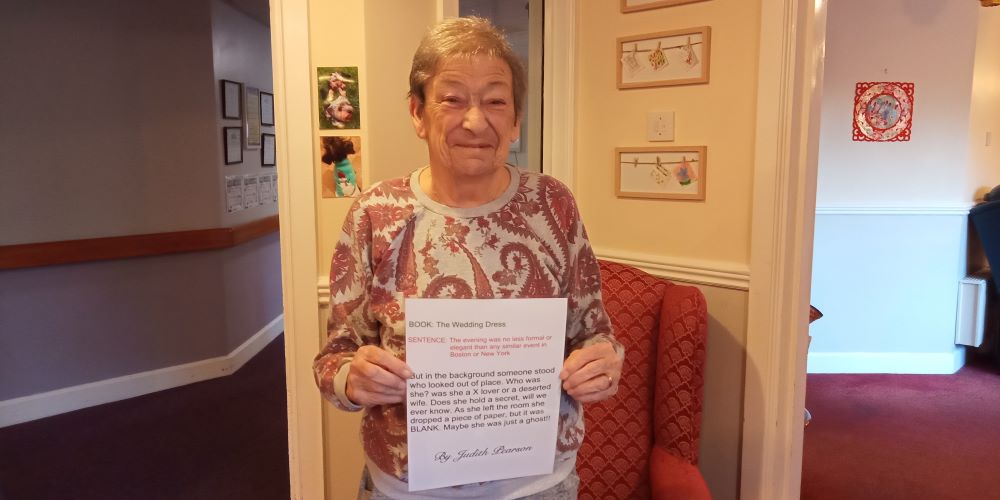 BOOK: The Wedding Dress
SENTENCE: The evening was no less formal or
elegant than any similar event in
Boston or New York
But in the background someone stood
who looked out of place. Who was
she? was she a X lover or a deserted
wife. Does she hold a secret, will we
ever know. As she left the room she
dropped a piece of paper, but it was
BLANK. Maybe she was just a ghost!!
By Judith Pearson